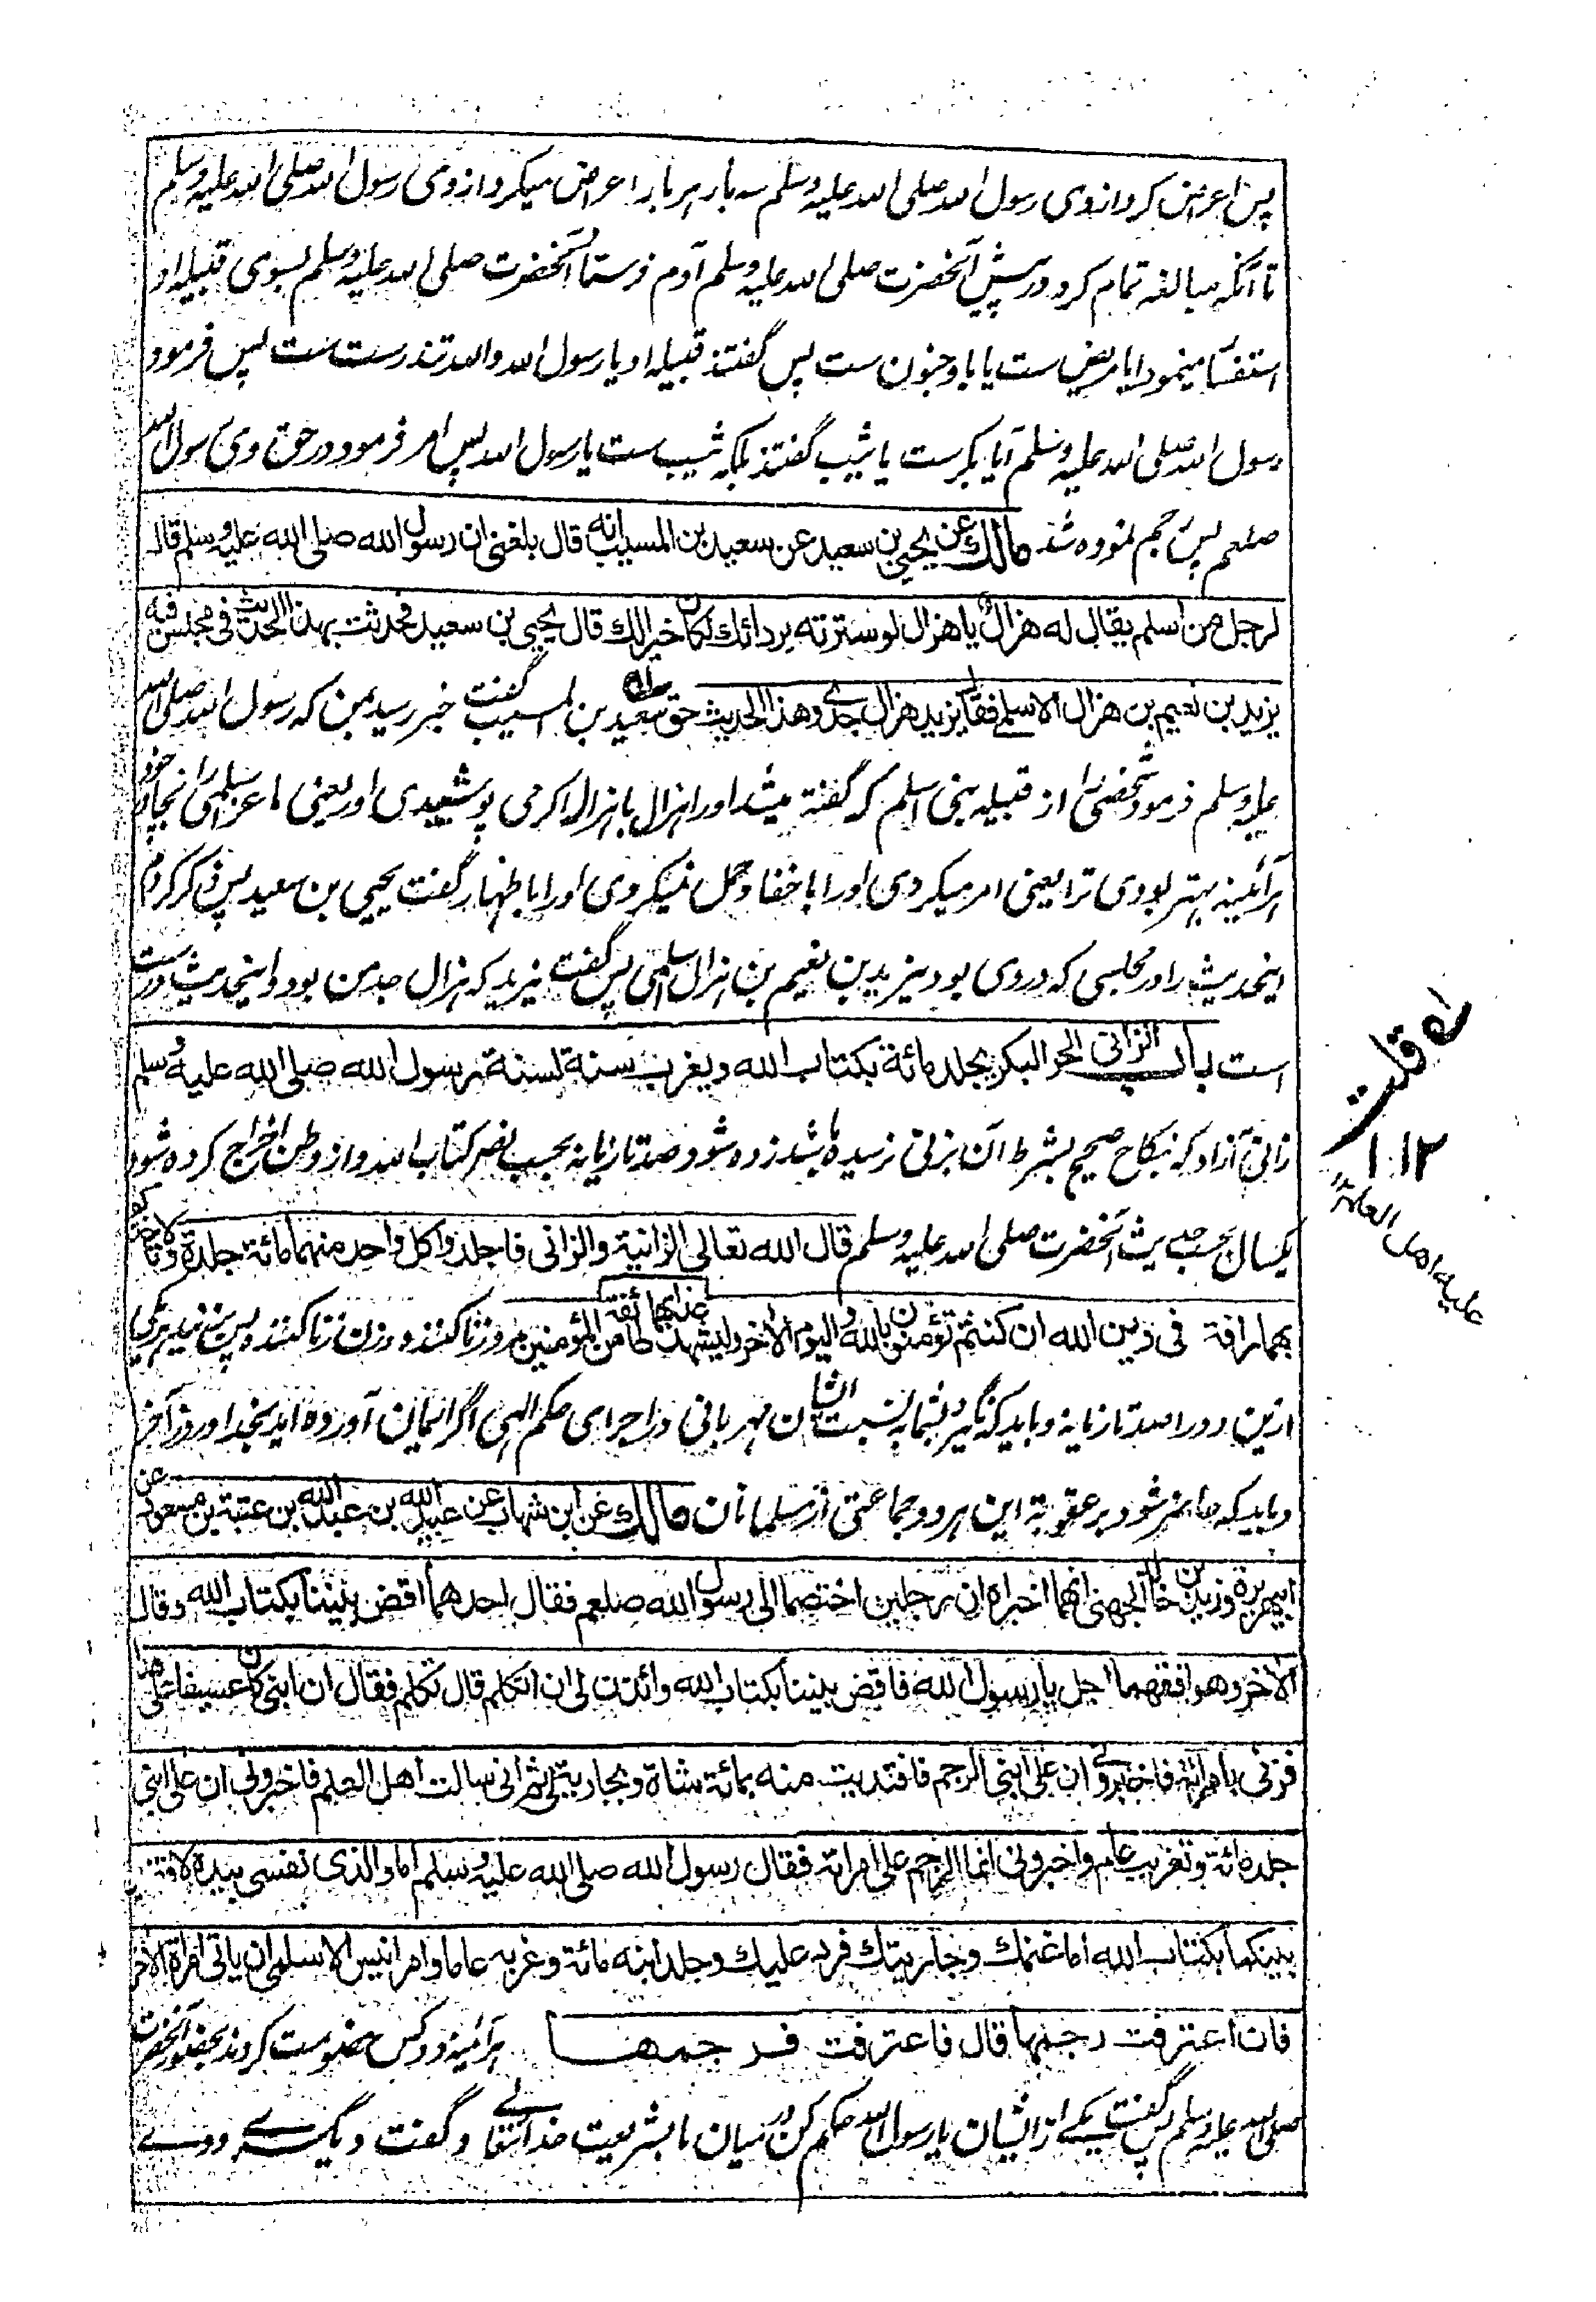 پس اعراض کرد از وی رسول الله صلی الله علیه وسلم سه بار هر بار اعراض میکرد از وی رسول الله صلی الله علیه وسلم
تا آنکه مبالغه تمام کرد در پیش آنحضرت صلی الله علیه وسلم آدم فرستاد آنحضرت صلی الله علیه وسلم بسوی قبیله او
استفسار مینمود آیا مریض ست یا با و جنون ست پس گفتند قبیله او یا رسول الله والله تندرست ست پس فرمود
رسول الله صلی الله علیه وسلم آیا بکر ست یا ثیب گفتند بلکه ثیب ست یا رسول الله پس امر فرمود در حق وی رسول الله
صلعم پس رجم نموده شد مالك عن يحيى بن سعيد عن سعيد بن المسيب انه قال بلغنى ان رسول الله صلى الله عليه وسلم قال
لرجل من اسلم يقال له هزال يا هزال لو سترته بردائك لكان خيرا لك قال يحيى بن سعيد فحدثت بهذا الحديث فى مجلس فيه
يزيد بن نعيم بن هزال الاسلمى فقال يزيد هزال جدى وهذا الحديث حق سعید بن المسیب گفت خبر رسید بمن که رسول الله صلی الله
علیه وسلم فرمود شخصی را از قبیله بنی اسلم که گفته میشد او را هزال یا هزال اگر می پوشیدی او را یعنی ماعز اسلمی را بجادر خود
هر آئینه بهتر بودی ترا یعنی امر میکردی او را باخفا و حمل نمیکردی او را باظهار گفت یحیی بن سعید پس ذکر کردم
اینحدیث را در مجلسی که در وی بود یزید بن نعیم بن هزال اسلمی پس گفت یزید که هزال جد من بود و اینحدیث درست
است باب الزانى الحر البكر يجلد مائة بكتاب الله ويغرب سنة لسنة رسول الله صلى الله عليه وسلم
زانی آزاد که نکاح صحیح بشرط آن بزنی نرسیده باشد زده شود صد تازیانه بحسب نص کتاب الله و از وطن اخراج کرده شود
یکسال بحسب حدیث آنحضرت صلی الله علیه وسلم قال الله تعالى الزانية والزانى فاجلدوا كل واحد منهما مائة جلدة ولا تاخذكم
بهما رافة فى دين الله ان كنتم تؤمنون بالله واليوم الآخر وليشهد عذابهما طائفة من المؤمنين مرد زنا کننده و زن زنا کننده پس بزنید هر یکی
ازین دو را صد تازیانه و باید که نگیرد شما به نسبت ایشان مهربانی در اجرای حکم الهی اگر ایمان آورده اید بخدا و روز آخر
و باید که حاضر شود بر عقوبة این هر دو جماعتی از مسلمانان مالك عن ابن شهاب عن عبيد الله بن عبد الله بن عتبة بن مسعود عن
ابى هريرة وزيد بن خالد الجهنى انهما اخبراه ان رجلين اختصما الى رسول الله صلعم فقال احدهما اقض بيننا بكتاب الله وقال
الآخر وهو افقههما اجل يا رسول الله فاقض بيننا بكتاب الله وائذن لى ان اتكلم قال تكلم فقال ان ابنى كان عسيفا على هذا
فزنى بامراته فاخبرونى ان على ابنى الرجم فافتديت منه بمائة شاة وبجارية لى ثم انى سالت اهل العلم فاخبرونى ان على ابنى
جلد مائة وتغريب عام واخبرونى انما الرجم على امراته فقال رسول الله صلى الله عليه وسلم اما والذى نفسى بيده لاقضين
بينكما بكتاب الله اما غنمك وجاريتك فرد عليك وجلد ابنه مائة وغربه عاما وامر انيس الاسلمى ان ياتى امراة الآخر
فان اعترفت رجمها قال فاعترفت فرجمها هر آئینه دو کس خصومت کردند بحضور آنحضرت
صلی الله علیه وسلم پس گفت یکے از ایشان یا رسول الله حکم کن در میان ما بشریعت خدا تعالے و گفت دیگرے ووے
قلت
علیه اهل العلم